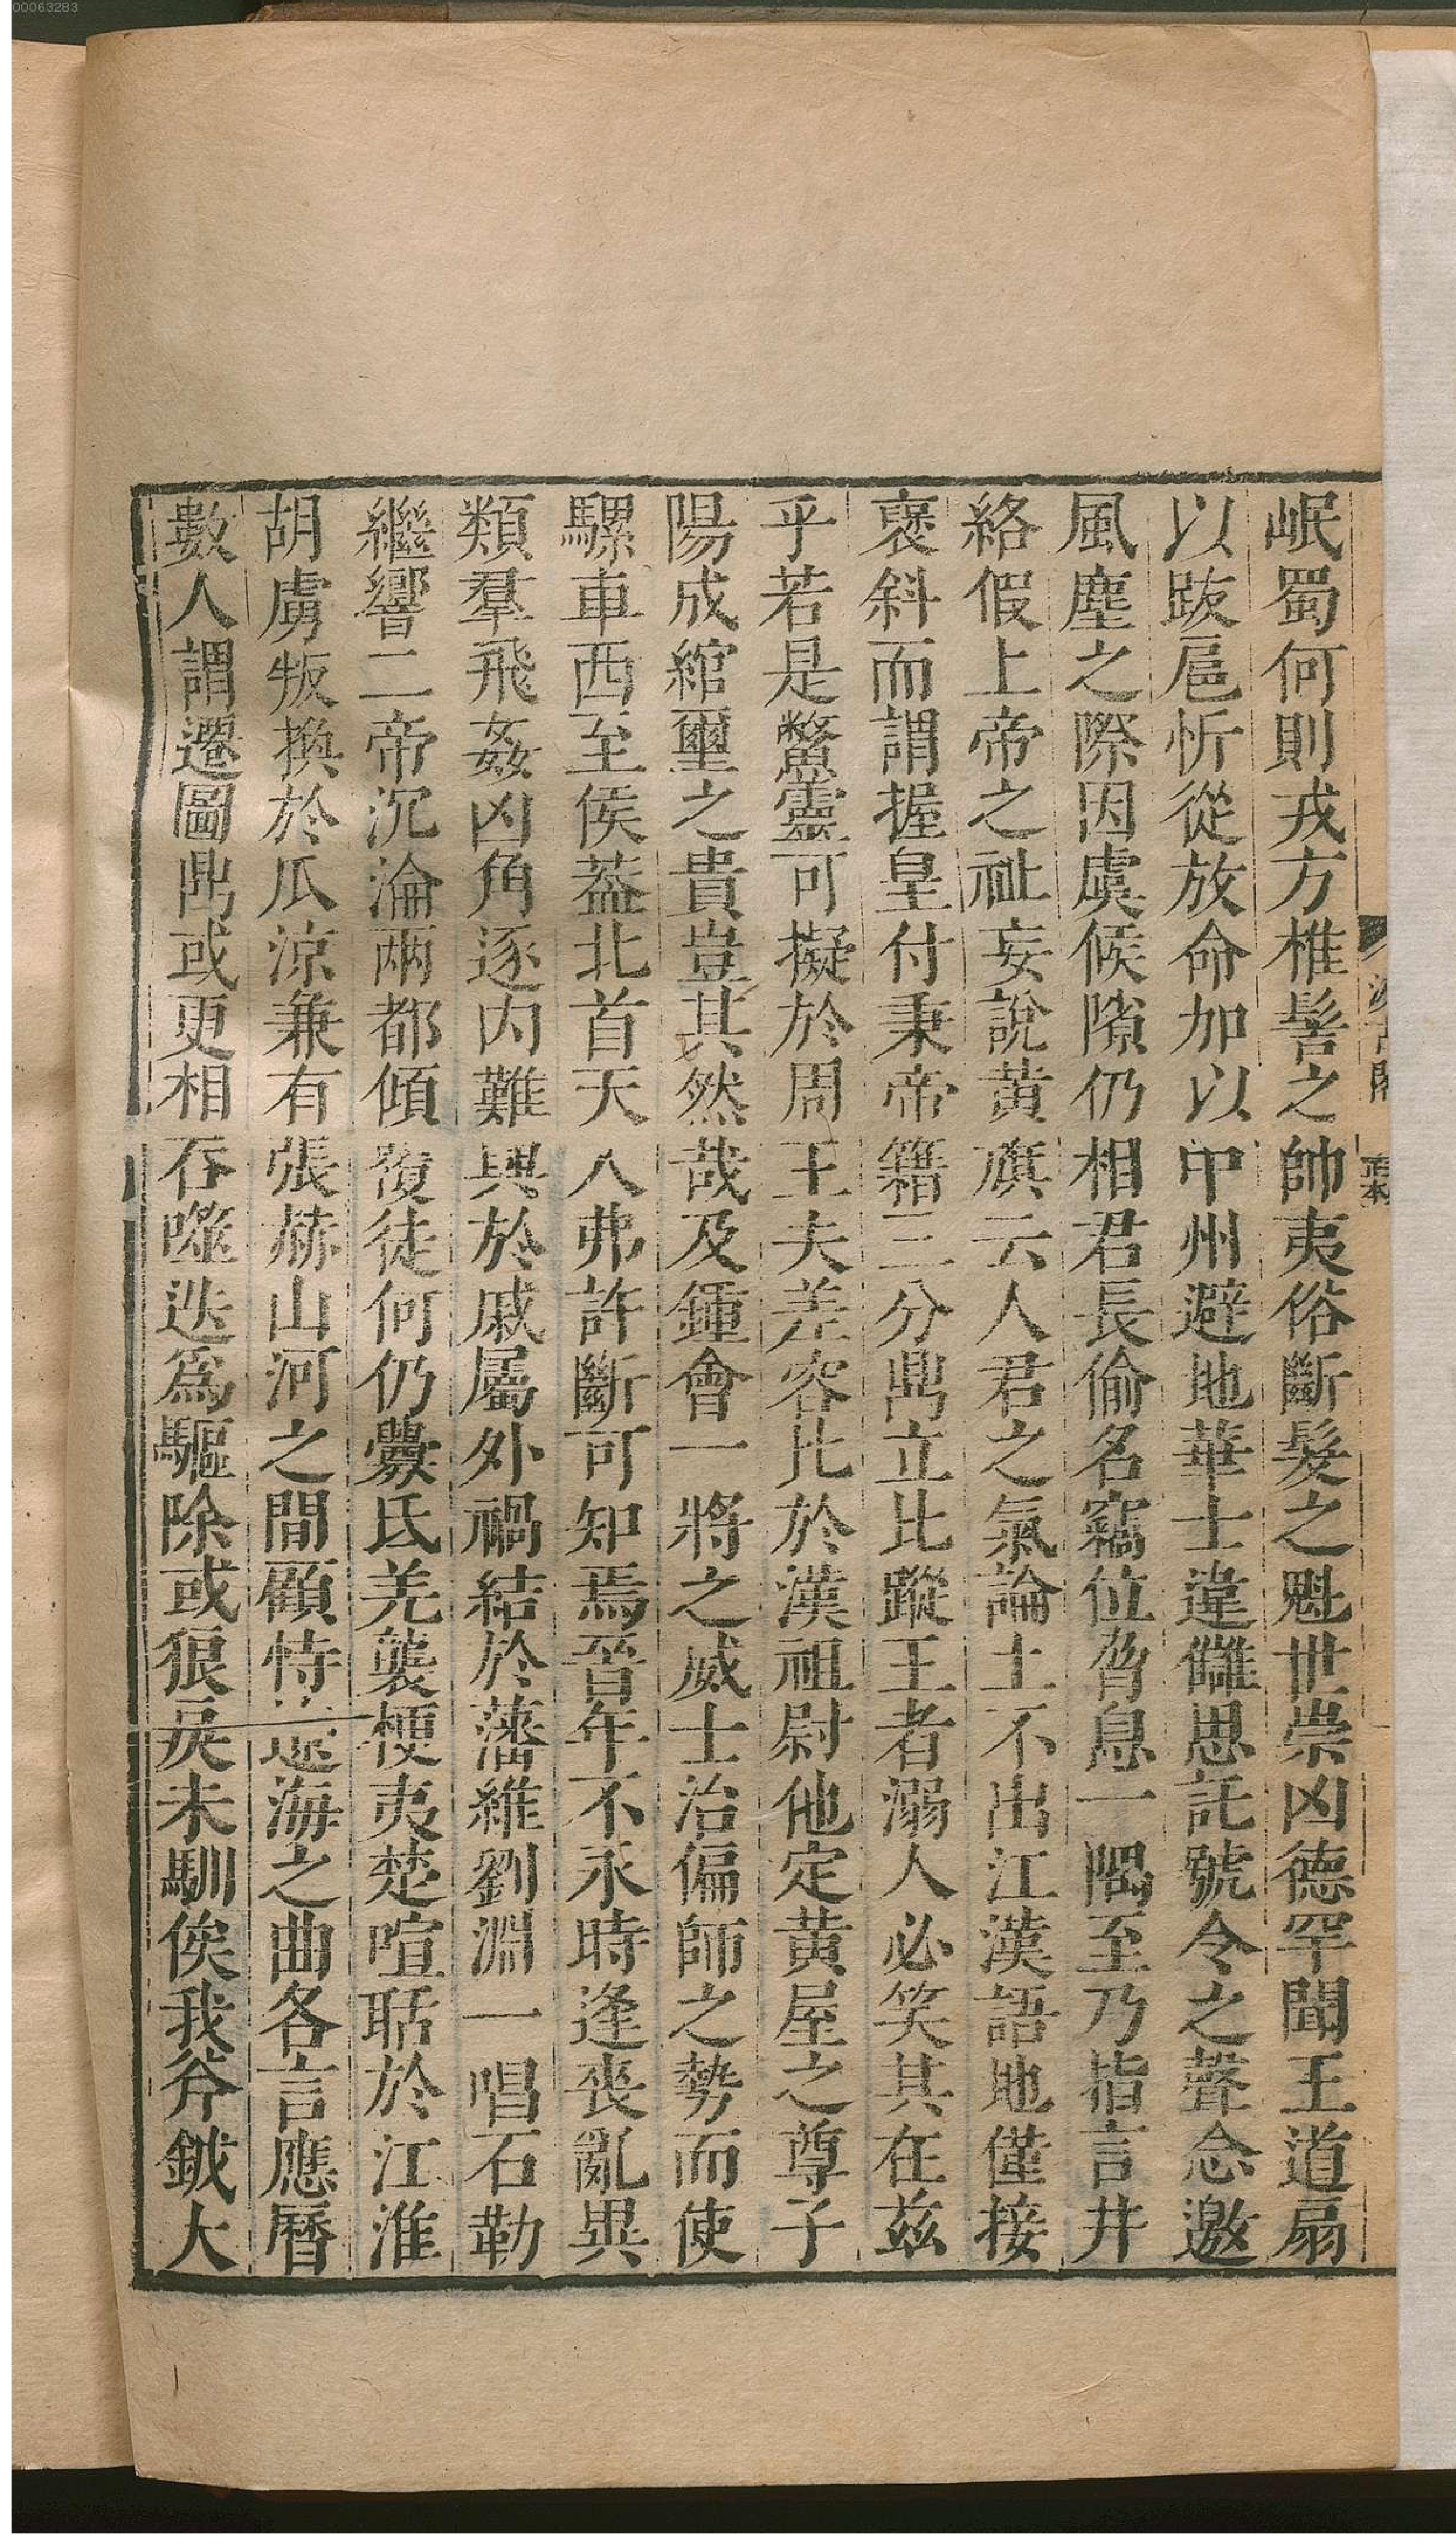 岷蜀何則戎方椎髻之帥夷俗斷髮之魁世崇凶德罕聞王道扇
以跋扈忻從放命加以中州避地華士違讎思託號令之聲念邀
風塵之際因虞候隙仍相君長偷名竊位脅息一隅至乃指言井
絡假上帝之祉妄說黃旗云人君之氣論土不出江漢語地僅接
褒斜而謂握皇付秉帝籍三分鼎立比蹤王者溺人必笑其在茲
乎若是鱉靈可擬於周王夫差容比於漢祖尉他定黃屋之尊子
陽成綰璽之貴豈其然哉及鍾會一將之威士治偏師之勢而使
騾車西至侯蓋北首天人弗許斷可知焉晉年不永時逢喪亂異
類羣飛姦凶角逐內難興於戚屬外禍結於藩維劉淵一唱石勒
繼響二帝沉淪兩都傾覆徒何仍釁氐羌襲梗夷楚喧聒於江淮
胡虜叛換於瓜涼兼有張赫山河之間顧恃遼海之曲各言應曆
數人謂遷圖鼎或更相吞噬迭爲驅除或狼戾未馴俟我斧鉞大
00063283